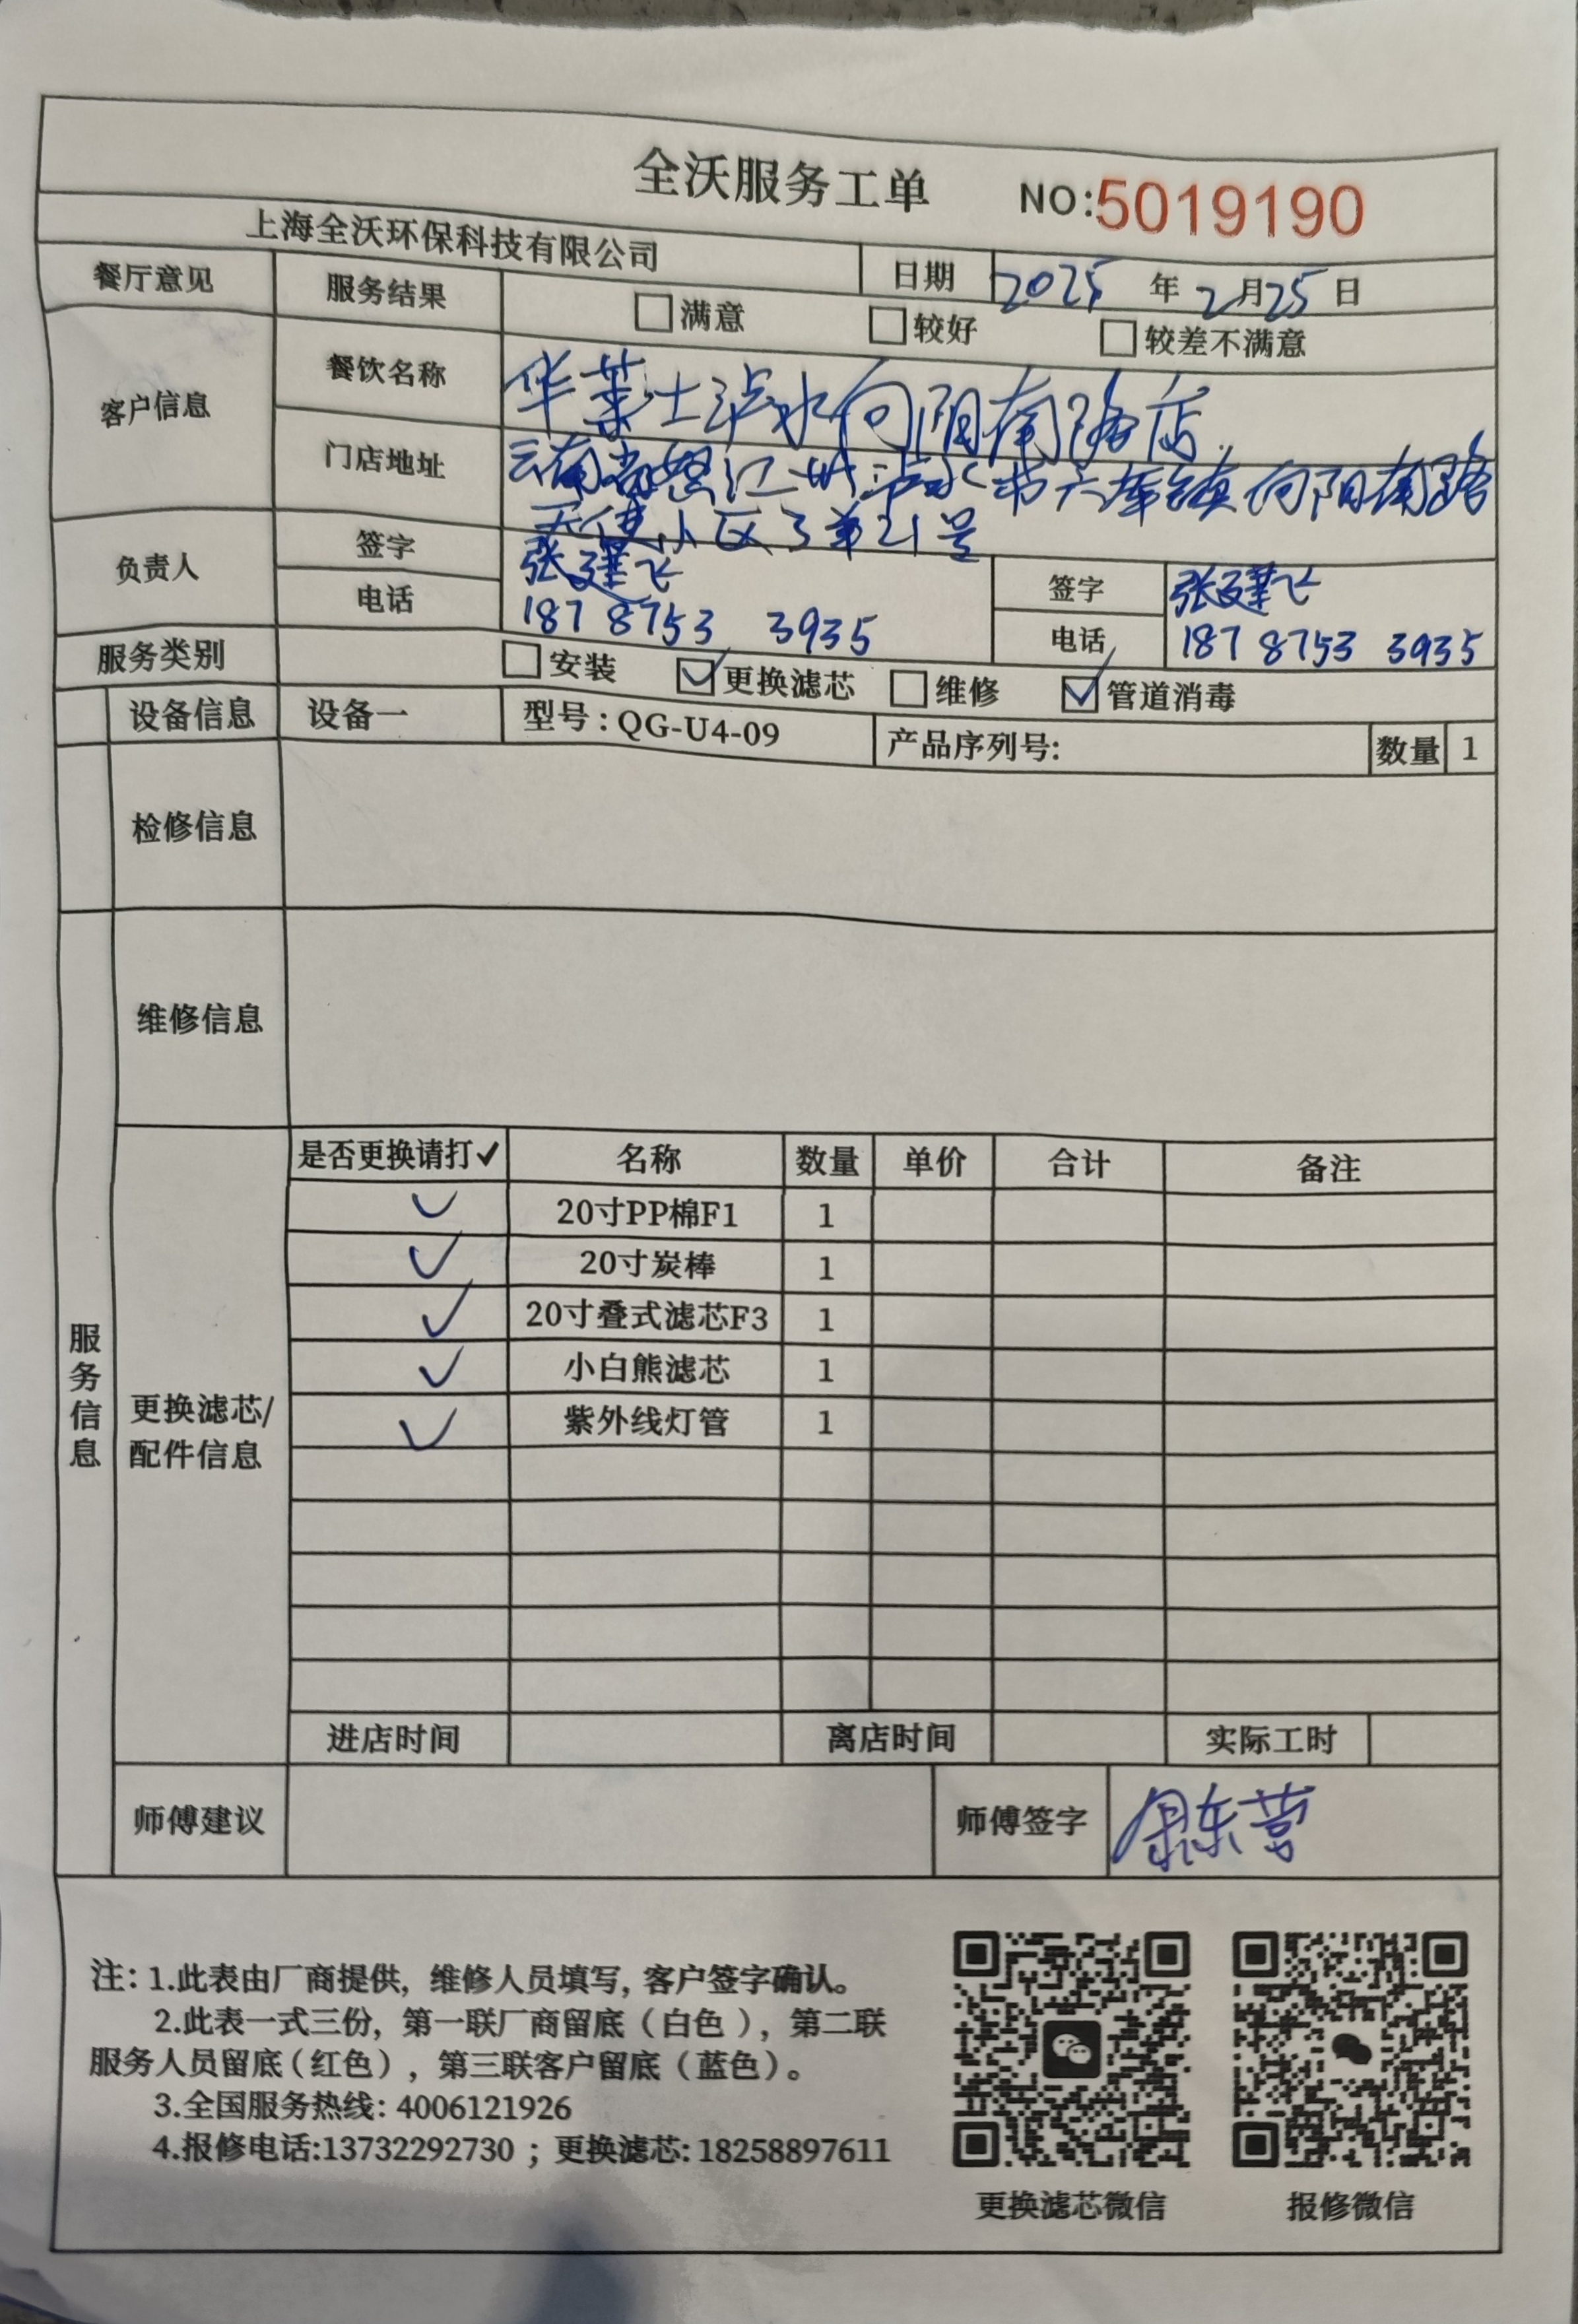 全沃服务工单 NO:5019190
上海全沃环保科技有限公司 日期 2025 年 2 月 25 日
餐厅意见 服务结果 满意 较好 较差不满意
客户信息 餐饮名称 华莱士泸水向阳南路店
门店地址 云南省怒江州泸水市六库镇向阳南路
天使小区3第21号
负责人 签字 张建飞 签字 张建飞
电话 187 8753 3935 电话 187 8753 3935
服务类别 安装 ✓更换滤芯 维修 ✓管道消毒
设备信息 设备一 型号:QG-U4-09 产品序列号: 数量 1
检修信息
维修信息
服务信息
更换滤芯/
配件信息
是否更换请打✓ 名称 数量 单价 合计 备注
✓ 20寸PP棉F1 1
✓ 20寸炭棒 1
✓ 20寸叠式滤芯F3 1
✓ 小白熊滤芯 1
✓ 紫外线灯管 1
进店时间 离店时间 实际工时
师傅建议 师傅签字
注: 1.此表由厂商提供, 维修人员填写, 客户签字确认。
2.此表一式三份, 第一联厂商留底（白色）, 第二联
服务人员留底(红色）, 第三联客户留底（蓝色)。
3.全国服务热线: 4006121926
4.报修电话:13732292730 ; 更换滤芯: 18258897611
更换滤芯微信 报修微信